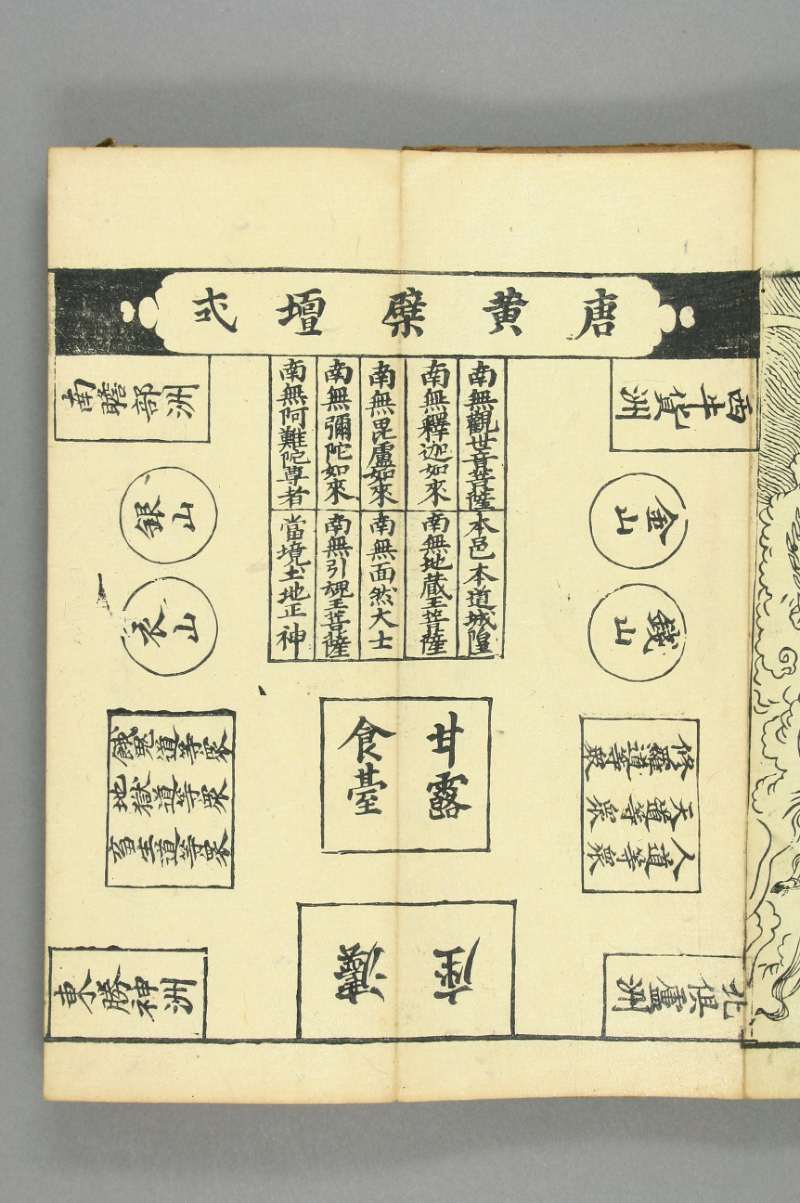 唐黄檗壇式
西牛貨洲
南無觀世音菩薩
南無釋迦如來
南無毘盧如來
南無彌陀如來
南無阿難陀尊者
本邑本道城隍
南無地蔵王菩薩
南無面然大士
南無引魂王菩薩
當境土地正神
南瞻部洲
金山
錢山
銀山
衣山
修羅道等衆
天道等衆
人道等衆
甘露
食臺
餓鬼道等衆
地獄道等衆
畜生道等衆
北俱盧洲
灋座
東勝神洲